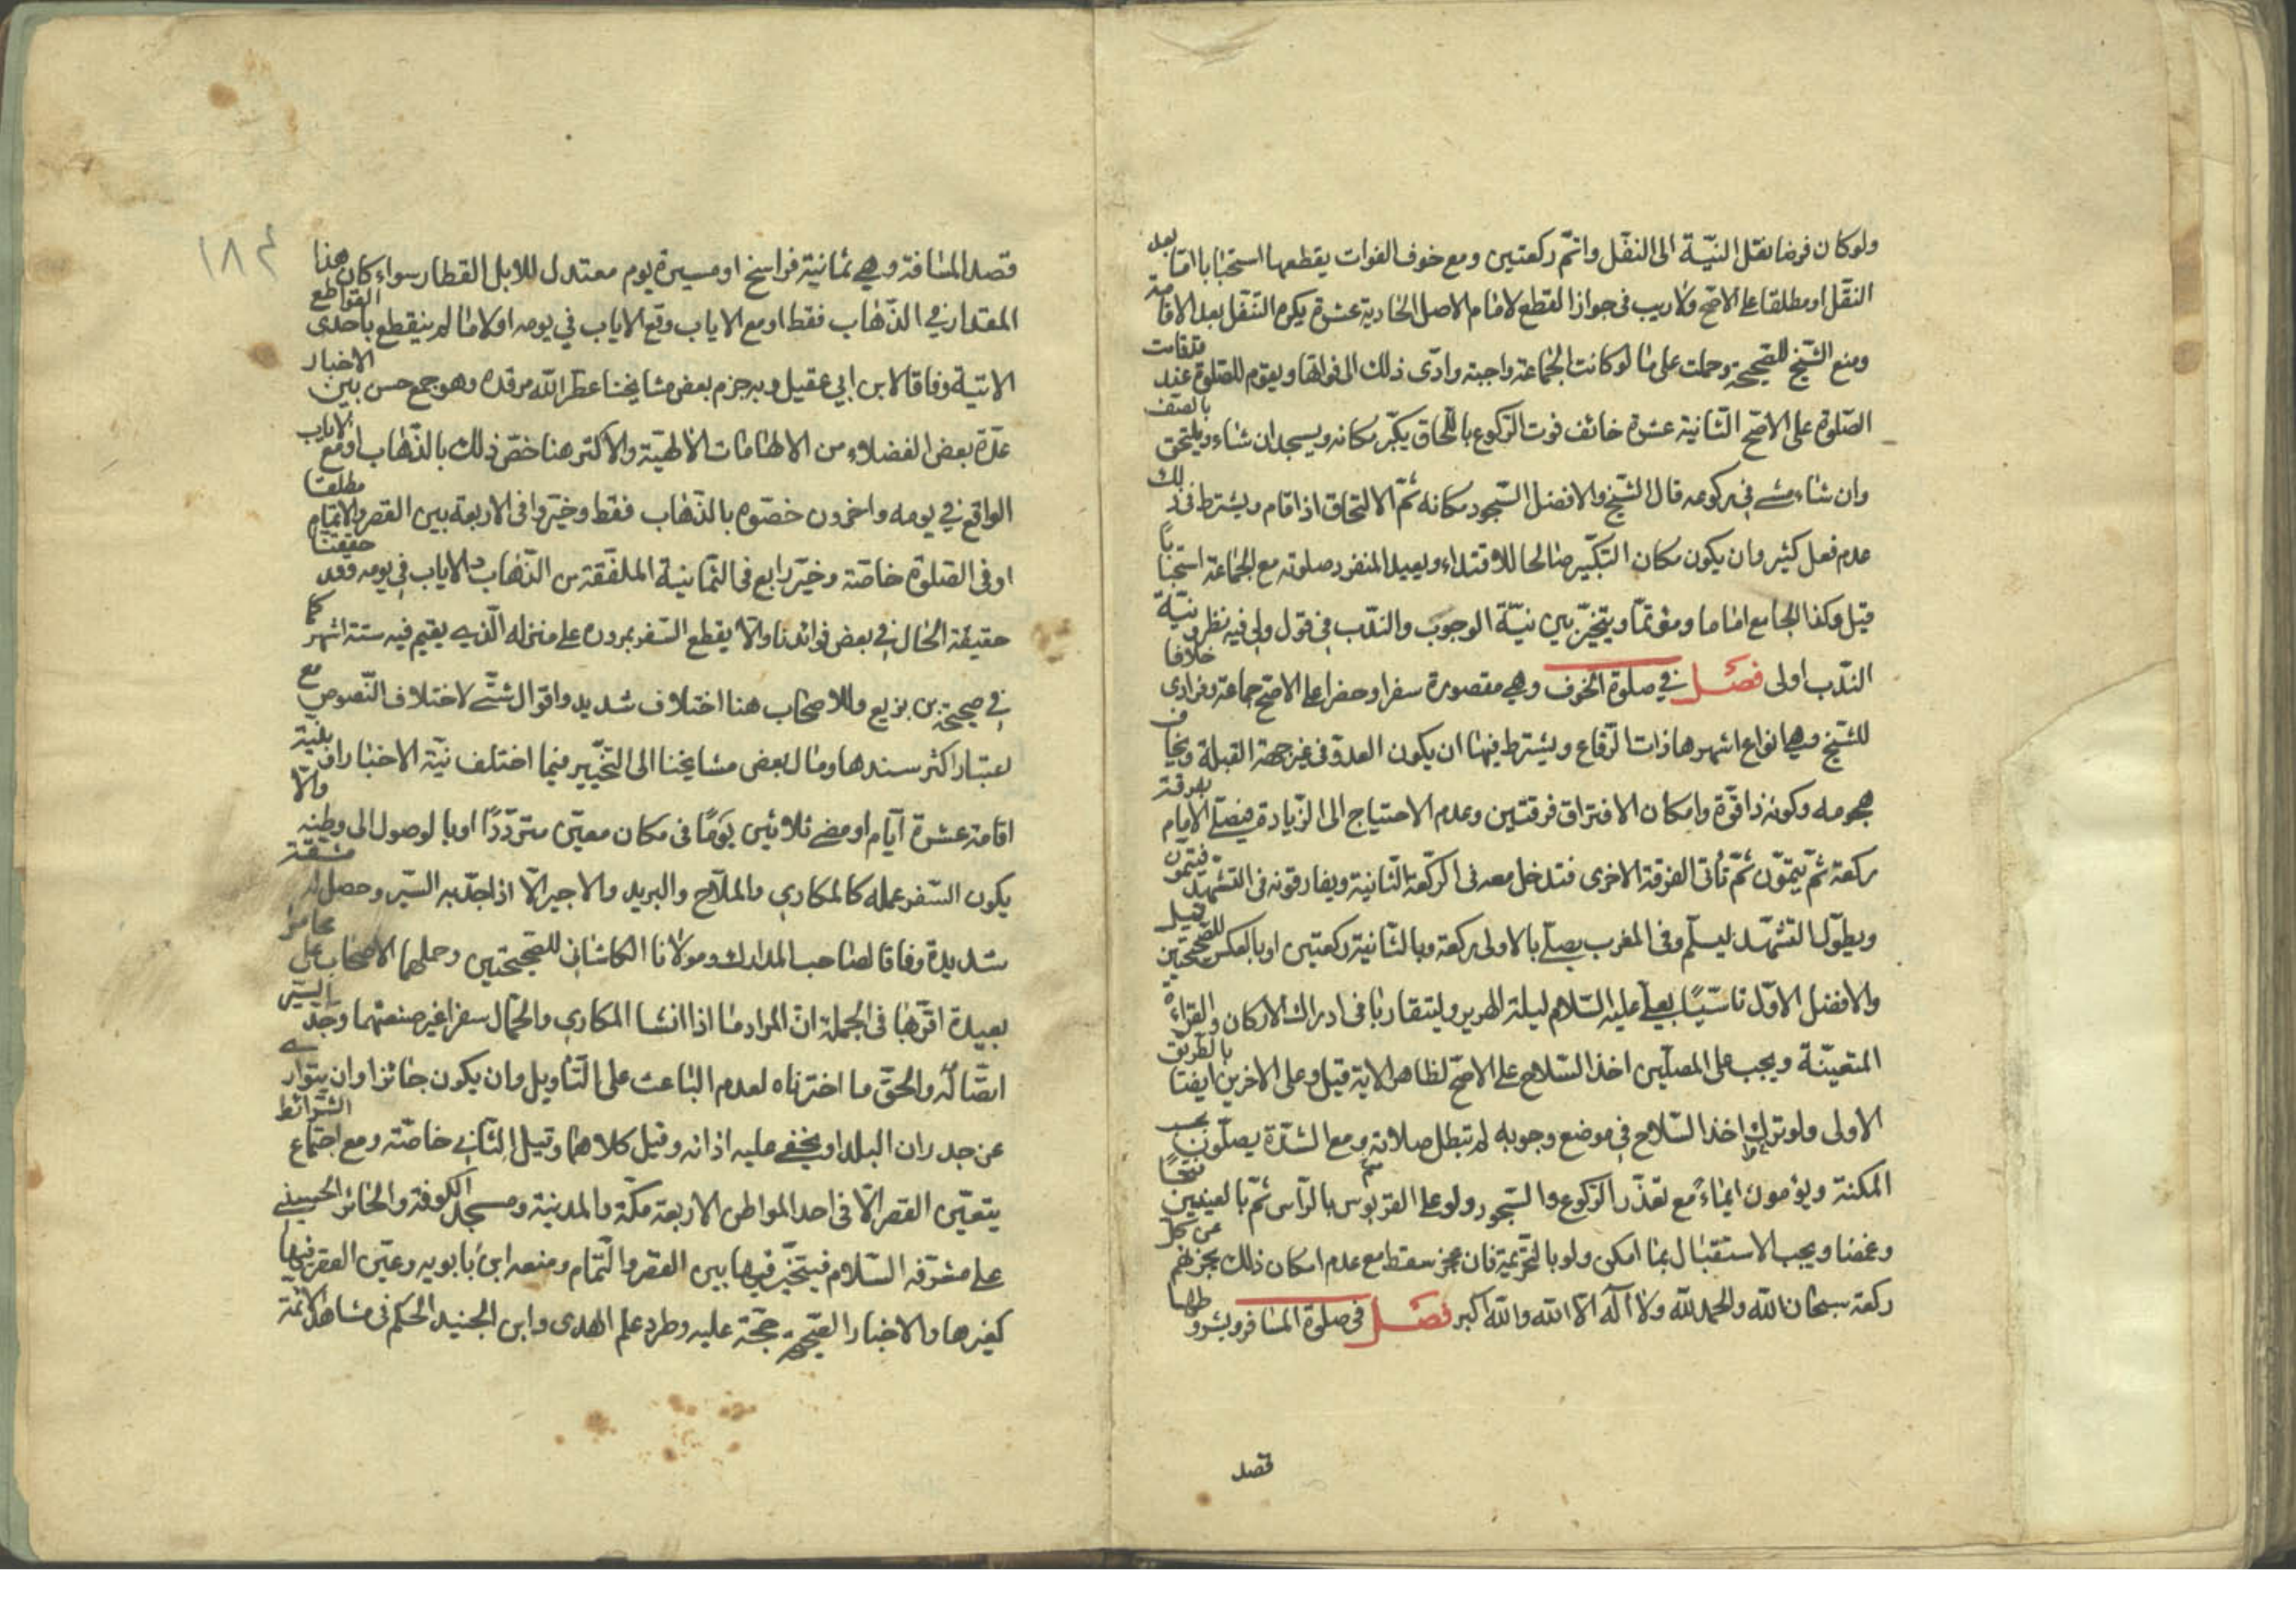 ولو كان فرضا نقل النيّة الى النفل واتم ركعتين ومع خوف الفوات يقطعها استحبابا اما بعد
النقل او مطلقا على الاصح ولا ريب فى جواز القطع لامام الاصل الحادية عشرة يكره التنفل بعد الاقامة
ومنع الشيخ للصحيحة وحملت على ما لو كانت الجماعة واجبة وادّى ذلك الى فواتها ويقوم للصلوة عند قد قامت
الصلوة على الاصح الثانية عشرة خائف فوت الركوع باللحاق يكبّر مكانه ويسجد ان شاء ويلتحق بالصف
وان شاء مشى فى ركوعه قال الشيخ والافضل السجود مكانه ثم الالتحاق اذا قام ويشترط فى ذلك
عدم فعل كثير وان يكون مكان التكبير صالحا للاقتداء ويعيد المنفرد صلوته مع الجماعة استحبابا
قيل وكذا الجامع اماما ومؤتمّا ويتخيّر بين نيّة الوجوب والندب فى قول ولى فيه نظر ونيّة
الندب اولى فصل فى صلوة الخوف وهى مقصورة سفرا وحضرا على الاصح جماعة وفرادى خلافا
للشيخ وهى انواع اشهرها ذات الرقاع ويشترط فيها ان يكون العدوّ فى غير جهة القبلة ويخاف
هجومه وكونه ذا قوّة وامكان الافتراق فرقتين وعدم الاحتياج الى الزيادة فيصلّى الامام بفرقة
ركعة ثمّ يتمّون ثمّ تأتى الفرقة الاخرى فتدخل معه فى الركعة الثانية ويفارقونه فى التشهد فيتمون
ويطوّل التشهّد ليسلّم وفى المغرب يصلّى بالاولى ركعة وبالثانية ركعتين او بالعكس للصحيحتين قيل
والافضل الاوّل تاسّيًا بعلى عليه السلام ليلة الهرير وليتقاربا فى ادراك الاركان والقراءة
المتعيّنة ويجب على المصلّين اخذ السّلاح على الاصحّ لظاهر الاية قيل وعلى الاخرين ايضا بالطريق
الاولى ولو ترك اخذ السّلاح فى موضع وجوبه لم تبطل صلاته ومع الشدّة يصلّون بحسب
المكنة ويؤمون ايماء مع تعذّر الركوع والسجود ولو على القربوس بالرأس ثمّ بالعينين فتحًا
وغمضا ويجب الاستقبال بما امكن ولو بالتحريمة فان عجز سقط مع عدم امكان ذلك يجزيهم عن كل
ركعة سبحان الله والحمد لله ولا اله الا الله والله اكبر فصل فى صلوة المسافر وشروطها
قصد
١٨٤
قصد المسافة وهى ثمانية فراسخ او مسيرة يوم معتدل للابل القطار سواء كان هذا
المقدار فى الذّهاب فقط او مع الاياب وقع الاياب فى يومه اولا ما لم ينقطع باحدى القواطع
الاتية وفاقا لابن ابى عقيل وبه جزم بعض مشايخنا عطّر الله مرقده وهو جمع حسن بين الاخبار
عدّه بعض الفضلاء من الالهامات الالهيّة والاكثر هنا خصّ ذلك بالذّهاب او مع الاياب
الواقع فى يومه واخرون خصّوه بالذّهاب فقط وخيّروا فى الاربعة بين القصر والاتمام مطلقا
او فى الصلوة خاصّة وخيّر رابع فى الثمانية الملفّقة من الذّهاب والاياب فى يومه وقد حققنا
حقيقة الحال فى بعض فوائدنا والّا يقطع السفر بمروره على منزله الّذى يقيم فيه ستة اشهر كما
فى صحيحة بن بزيع وللاصحاب هنا اختلاف شديد واقوال شتّى لاختلاف النّصوص مع
اعتبار اكثر سندها ومال بعض مشايخنا الى التخيير فيما اختلف فيه الاخبار او بنيّة
اقامة عشرة ايّام او مضى ثلاثين يومًا فى مكان معيّن متردّدًا او بالوصول الى وطنه والّا
يكون السّفر عمله كالمكارى والملّاح والبريد والاجير الّا اذا جدّ به السّير وحصل له مشقّة
شديدة وفاقا لصاحب المدارك ومولانا الكاشانى للصحيحتين وحملهما الاصحاب على محامل
بعيدة اقربها فى الجملة انّ المراد ما اذا انشا المكارى والجمّال سفرا غير صنعتهما وجدّ السير
اتصاله والحقّ ما اخترناه لعدم الباعث على التّاويل وان يكون جائزا وان يتوارى
عن جدران البلد او يخفى عليه اذانه وقيل كلاهما وقيل الثّانى خاصّة ومع اجتماع الشرائط
يتعيّن القصر الّا فى احد المواطن الاربعة مكّة والمدينة ومسجد الكوفة والحائر الحسينى
على مشرّفه السّلام فيتخيّر فيها بين القصر والتّمام ومنعه ابن بابويه وعيّن القصر فيها
كغيرها والاخبار الصحيحة حجّة عليه وطرد علم الهدى وابن الجنيد الحكم فى مشاهد الائمة